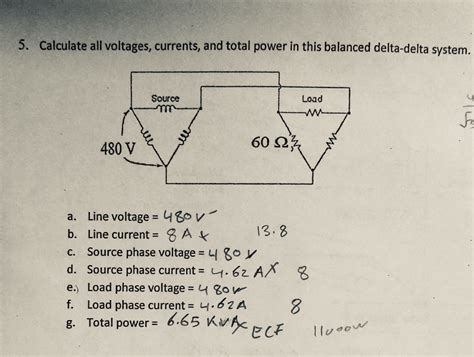 5. Calculate all voltages, currents, and total power in this balanced delta-delta system.
Source
Load
480 V
60 Ω
a. Line voltage = 480V
b. Line current = 8A x 13.8
c. Source phase voltage = 480V
d. Source phase current = 4.62 A X 8
e. Load phase voltage = 480V
f. Load phase current = 4.62A 8
g. Total power = 6.65 KW X ECF 11000W